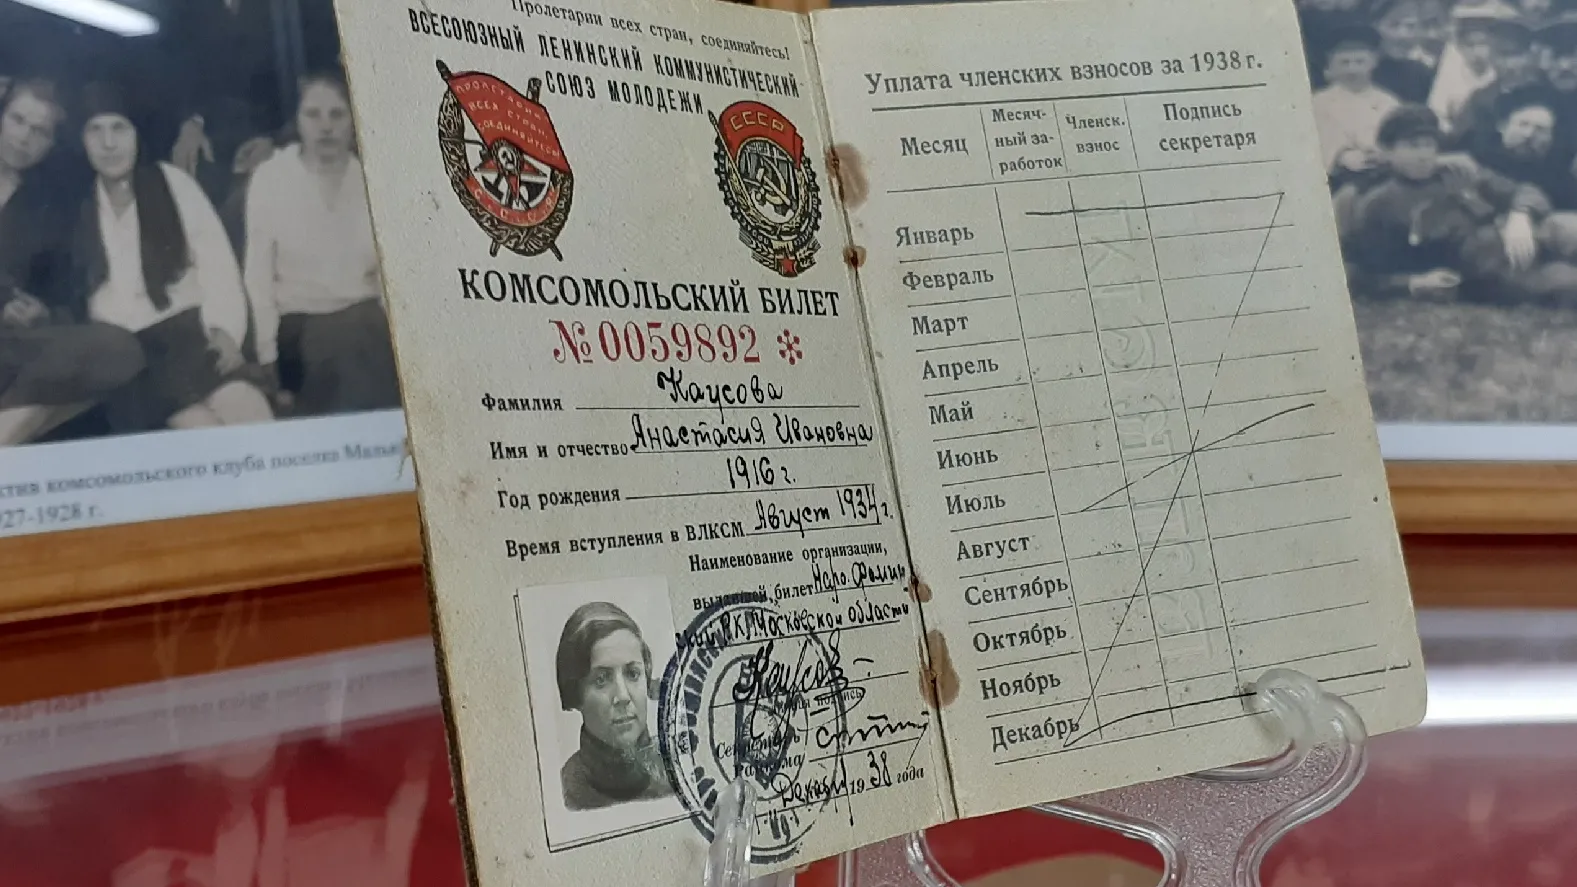 Пролетарии всех стран, соединяйтесь!
ВСЕСОЮЗНЫЙ ЛЕНИНСКИЙ КОММУНИСТИЧЕСКИЙ
СОЮЗ МОЛОДЕЖИ
ПРОЛЕТАРИИ
ВСЕХ СТРАН
СОЕДИНЯЙТЕСЬ
СССР
СССР
КОМСОМОЛЬСКИЙ БИЛЕТ
№ 0059892
Фамилия Каусова
Имя и отчество Анастасия Ивановна
Год рождения 1916 г.
Время вступления в ВЛКСМ Август 1934 г.
Наименование организации,
выдавшей билет Наро. Фомин
ский РК Московской области
подпись
Секретарь
Райкома
Декабрь 1938 года
Уплата членских взносов за 1938 г.
Месяц
Месяч-
ный за-
работок
Членск.
взнос
Подпись
секретаря
Январь
Февраль
Март
Апрель
Май
Июнь
Июль
Август
Сентябрь
Октябрь
Ноябрь
Декабрь
комсомольского клуба поселка
27-1928 г.